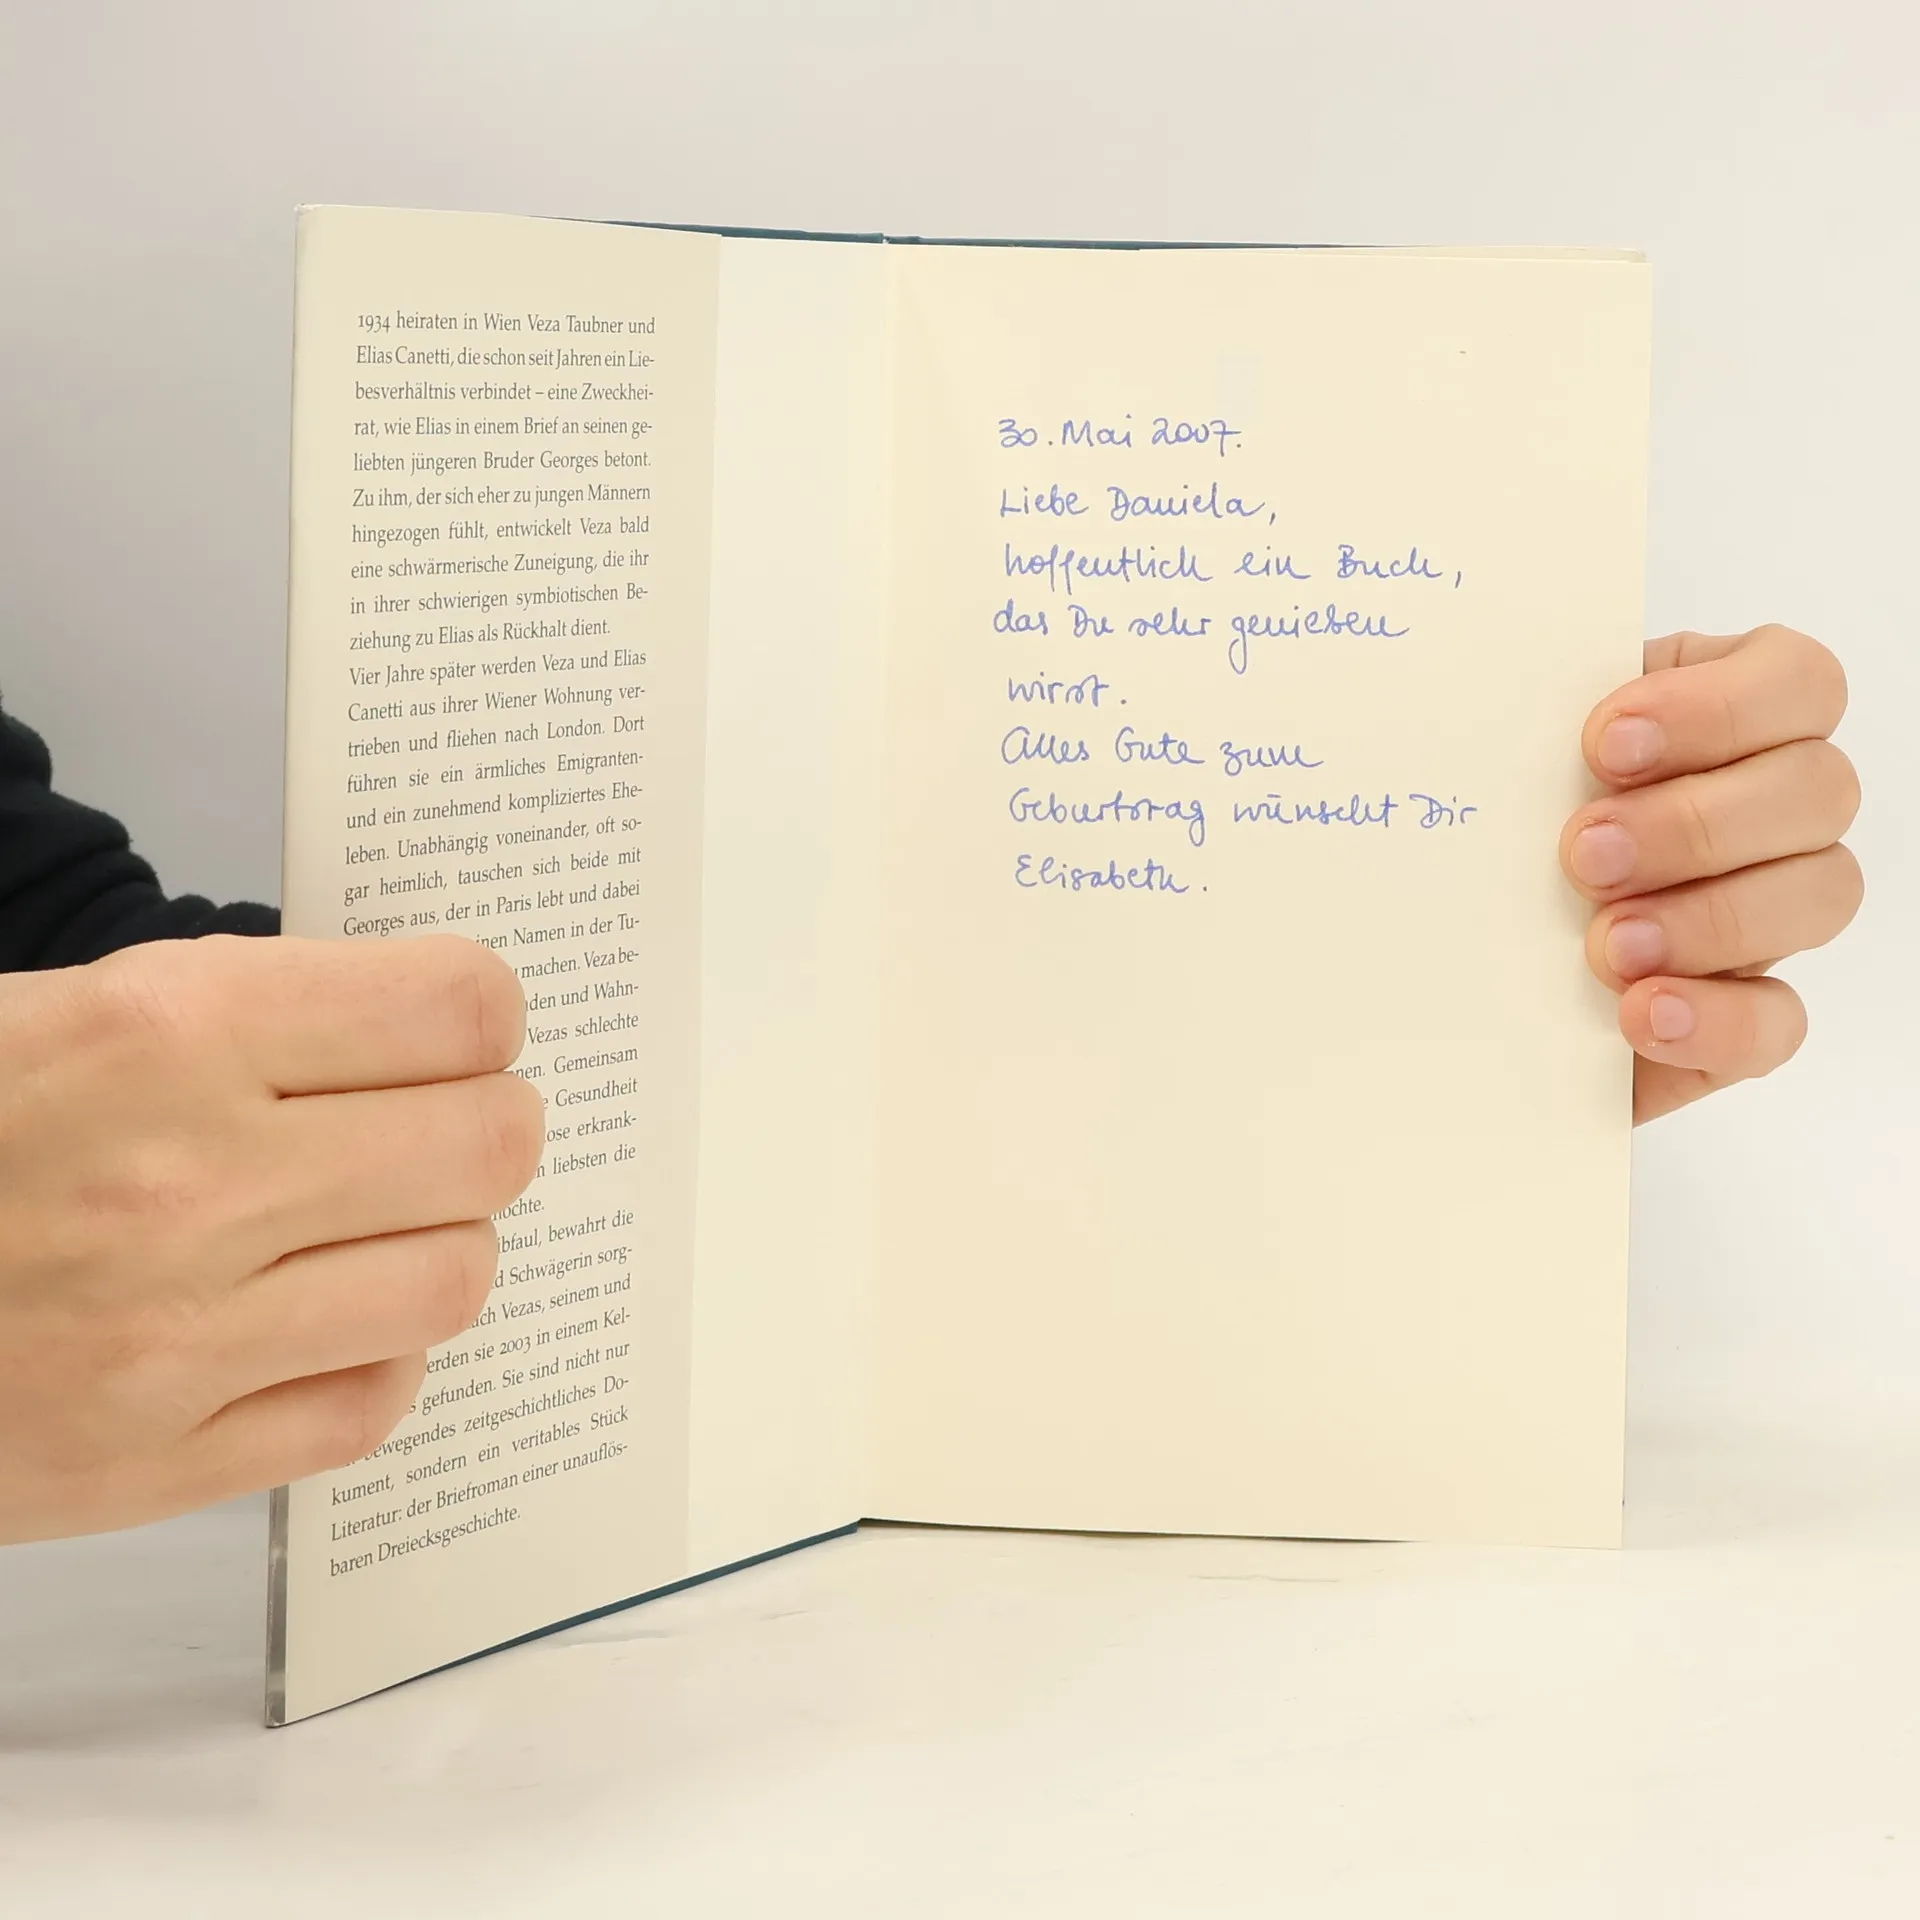 1934 heiraten in Wien Veza Taubner und
Elias Canetti, die schon seit Jahren ein Lie-
besverhältnis verbindet – eine Zweckhei-
rat, wie Elias in einem Brief an seinen ge-
liebten jüngeren Bruder Georges betont.
Zu ihm, der sich eher zu jungen Männern
hingezogen fühlt, entwickelt Veza bald
eine schwärmerische Zuneigung, die ihr
in ihrer schwierigen symbiotischen Be-
ziehung zu Elias als Rückhalt dient.
Vier Jahre später werden Veza und Elias
Canetti aus ihrer Wiener Wohnung ver-
trieben und fliehen nach London. Dort
führen sie ein ärmliches Emigranten-
und ein zunehmend kompliziertes Ehe-
leben. Unabhängig voneinander, oft so-
gar heimlich, tauschen sich beide mit
Georges aus, der in Paris lebt und dabei
Namen in der Tu-
machen. Veza be-
und Wahn-
Vezas schlechte
Gemeinsam
Gesundheit
erkrank-
liebsten die
bewahrt die
Schwägerin sorg-
Vezas, seinem und
sie 2003 in einem Kel-
gefunden. Sie sind nicht nur
bewegendes zeitgeschichtliches Do-
kument, sondern ein veritables Stück
Literatur: der Briefroman einer unauflös-
baren Dreiecksgeschichte.
30. Mai 2007.
Liebe Daniela,
hoffentlich ein Buch,
das Du sehr genießen
wirst.
Alles Gute zum
Geburtstag wünscht Dir
Elisabeth.